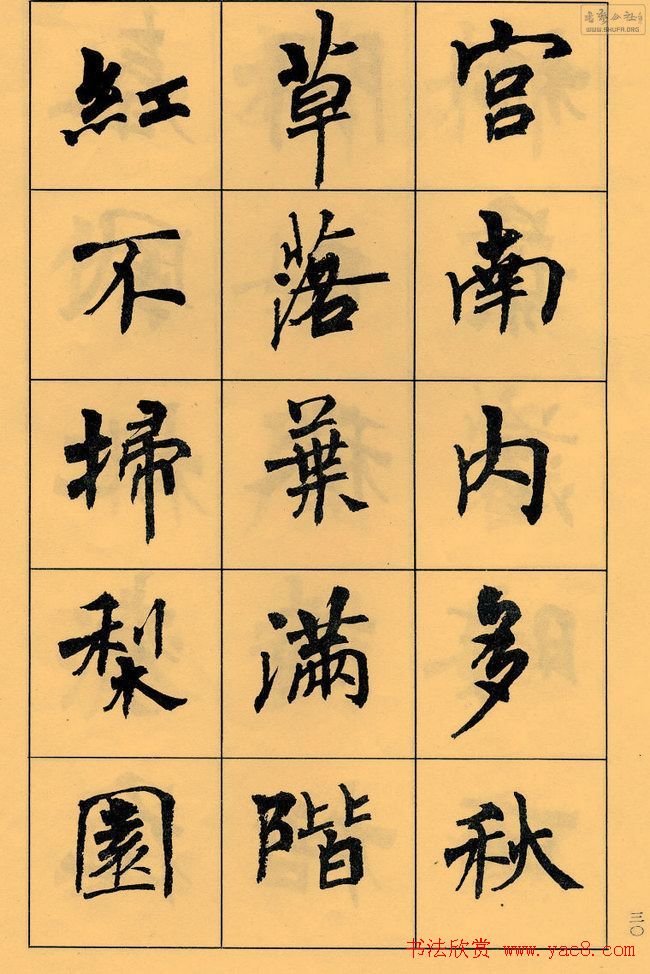 宫南内多秋
草落葉滿階
紅不掃梨園
三〇
書法欣赏 www.yac8.com
WWW.SHUFA.ORG